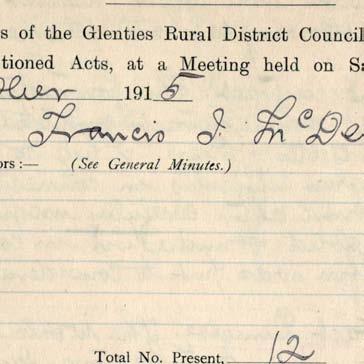 s of the Glenties Rural District Council
tioned Acts, at a Meeting held on Sa
ober 1915
Francis J. McDe
ors :— (See General Minutes.)
Total No. Present, 12